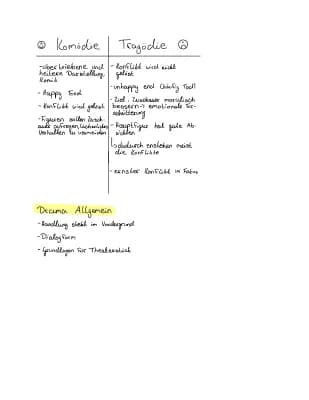 Komödie
- übertriebene und
heitere Darstellung,
Komik
- Happy End
- Konflikt wird gelöst
- Figuren sollen Zusch-
auer
Verhalten zu vermeiden
Tragödie
- Konflikt wird nicht
gelöst
- unhappy end (häufig Tod)
- Ziel: Zuschauer moralisch
bessern → emotionale Er-
schütterung
- Hauptfigur hat gute Ab-
sichten
↳ dadurch entstehen meist
die Konflikte
- ernster Konflikt im Fokus
Drama Allgemein
- Handlung steht im Vordergrund
- Dialogform
- Grundlagen für Theaterstück